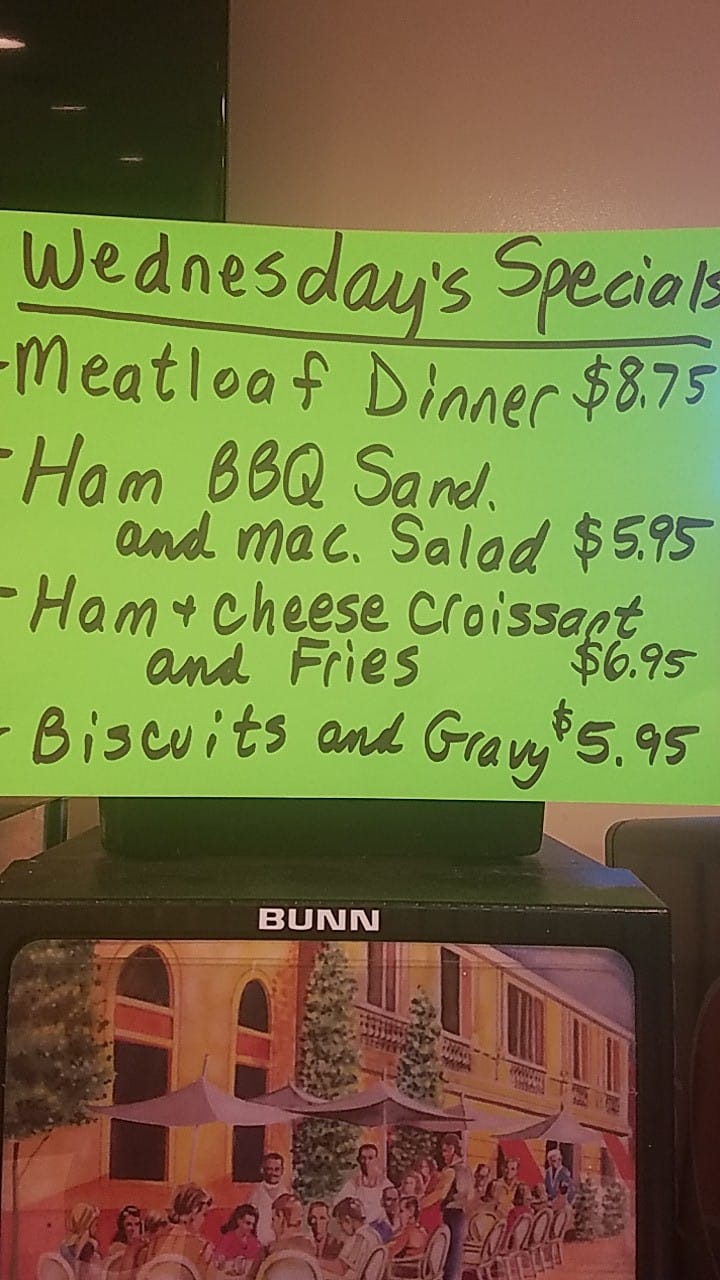 Wednesday's Specials
-Meatloaf Dinner $8.75
-Ham BBQ Sand.
and mac. Salad $5.95
-Ham + cheese Croissant
and Fries $6.95
-Biscuits and Gravy $5.95
BUNN